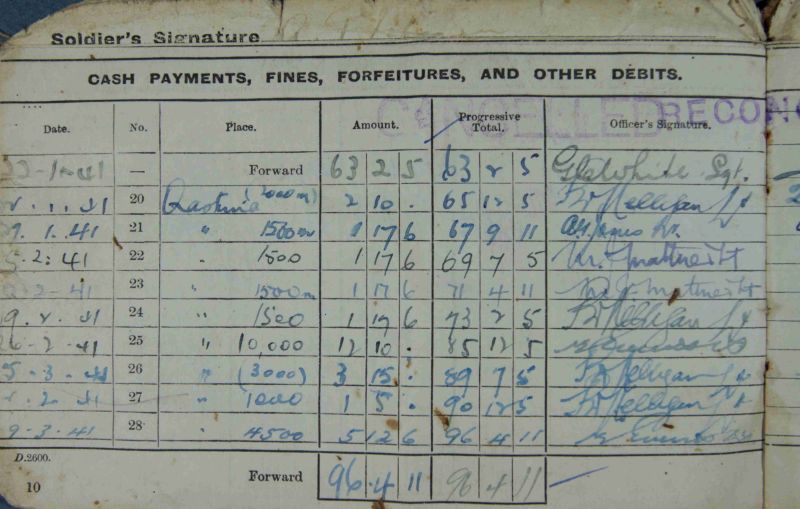 Soldier's Signature
CASH PAYMENTS, FINES, FORFEITURES, AND OTHER DEBITS.
CANCELLED RECON
Date. No. Place. Amount. Progressive Total. Officer's Signature.
22-1-41 — Forward 63 2 5 63 2 5 White Sgt.
1. 41 20 (2000m) 2 10 . 65 12 5 Lt
1. 41 21 " 1500m 1 17 6 67 9 11
5:2:41 22 " 1500 1 17 6 69 7 5
2-41 23 " 1500m 1 17 6 71 4 11
9. 2. 41 24 " 1500 1 17 6 73 2 5 Lt
26-2-41 25 " 10,000 12 10 . 85 12 5
5. 3. 41 26 " (3000) 3 15 . 89 7 5 Lt
2. 41 27 " 1000 1 5 . 90 12 5 Lt
9-3-41 28 " 4500 5 12 6 96 4 11
D.2600.
Forward 96 . 4 11 96 4 11
10